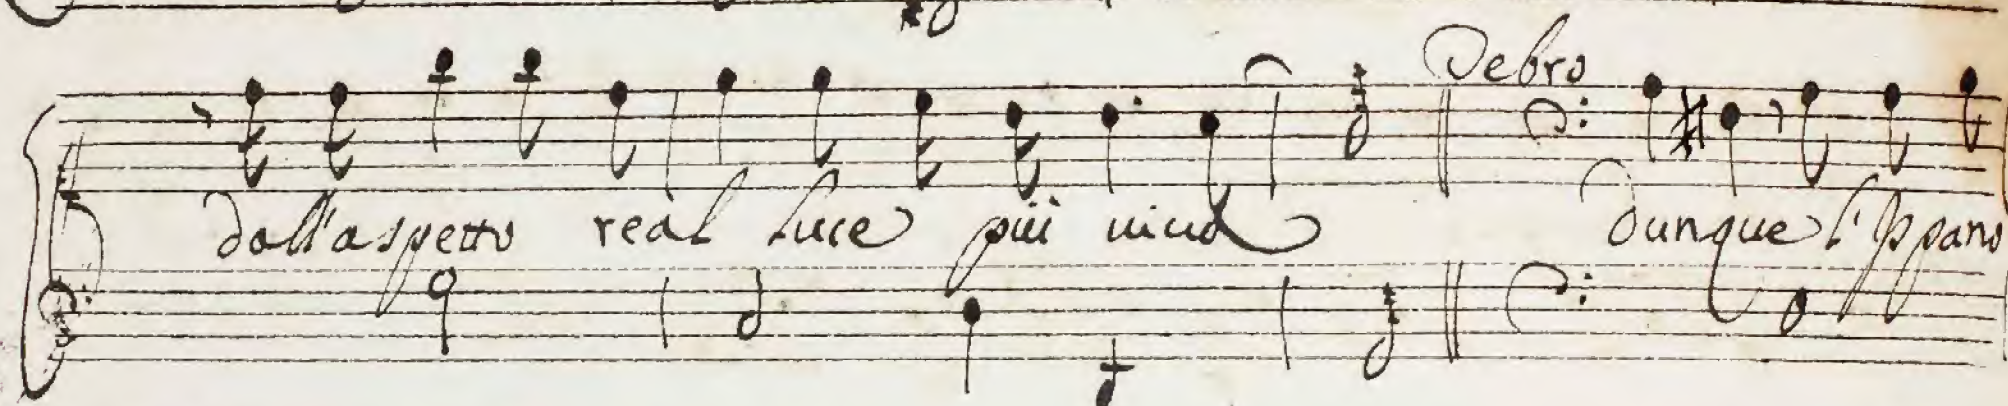 Debro
dall'aspetto real luce più viua dunque l'Ispano